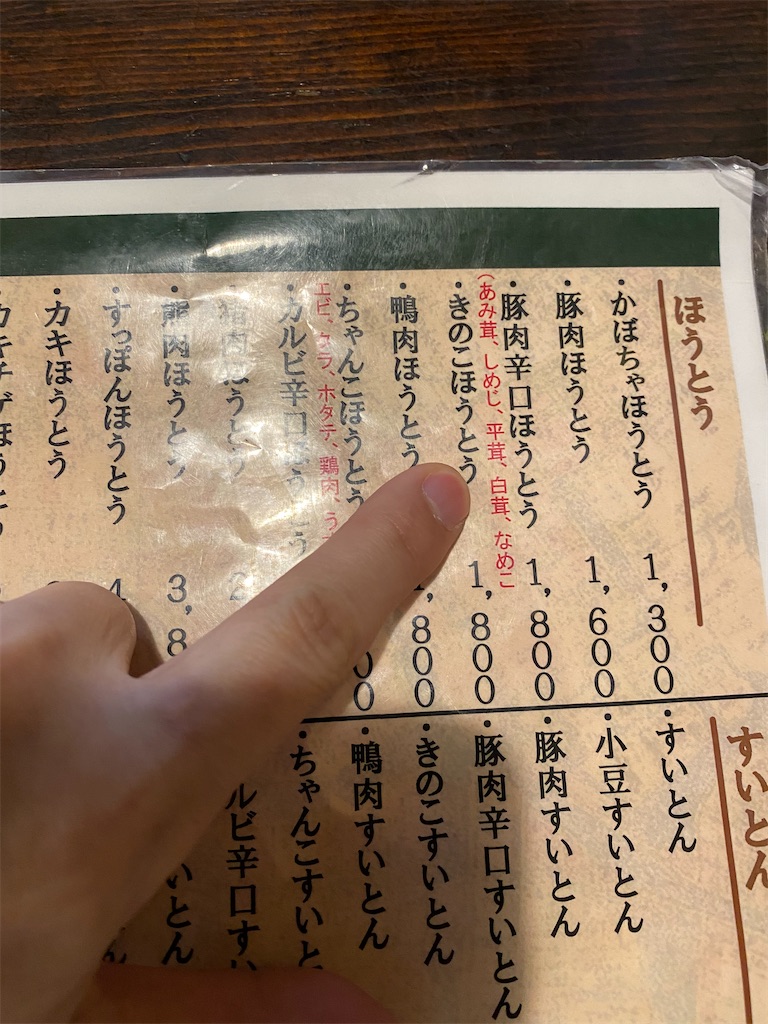 ほうとう
・かぼちゃほうとう 1,300
・豚肉ほうとう 1,600
・豚肉辛口ほうとう 1,800
・きのこほうとう 1,800
(あみ茸、しめじ、平茸、白茸、なめこ
・鴨肉ほうとう 1,800
・ちゃんこほうとう 00
エビ、タラ、ホタテ、鶏肉、う
・カルビ辛口ほうとう
肉ほうとう 2
・熊肉ほうとう 3,8
・すっぽんほうとう 4
・カキほうとう
カキチゲほうとう
すいとん
・すいとん
・小豆すいとん
・豚肉すいとん
・豚肉辛口すいとん
・きのこすいとん
・鴨肉すいとん
・ちゃんこすいと
ルビ辛口すい
いとん
ん